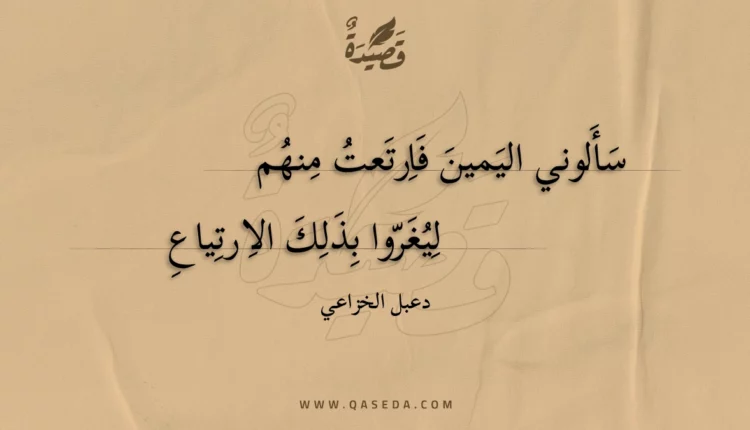 قَصِيْدَةٌ
سَأَلوني اليَمينَ فَاِرتَعتُ مِنهُم
لِيُغَرّوا بِذَلِكَ الاِرتِياعِ
دعبل الخزاعي
WWW.QASEDA.COM